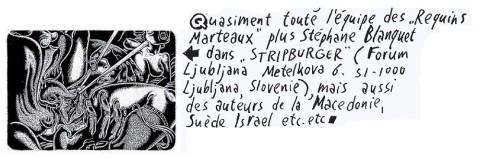 Quasiment touté l'équipe des „Requins
Marteaux" plus Stéphane Blanquet
← dans „STRIPBURGER" (Forum
Ljubljana Metelkova 6. SI-1000
Ljubljana, Slovenié), mais aussi
des auteurs de la Macedonie,
Suède Israel etc. etc■